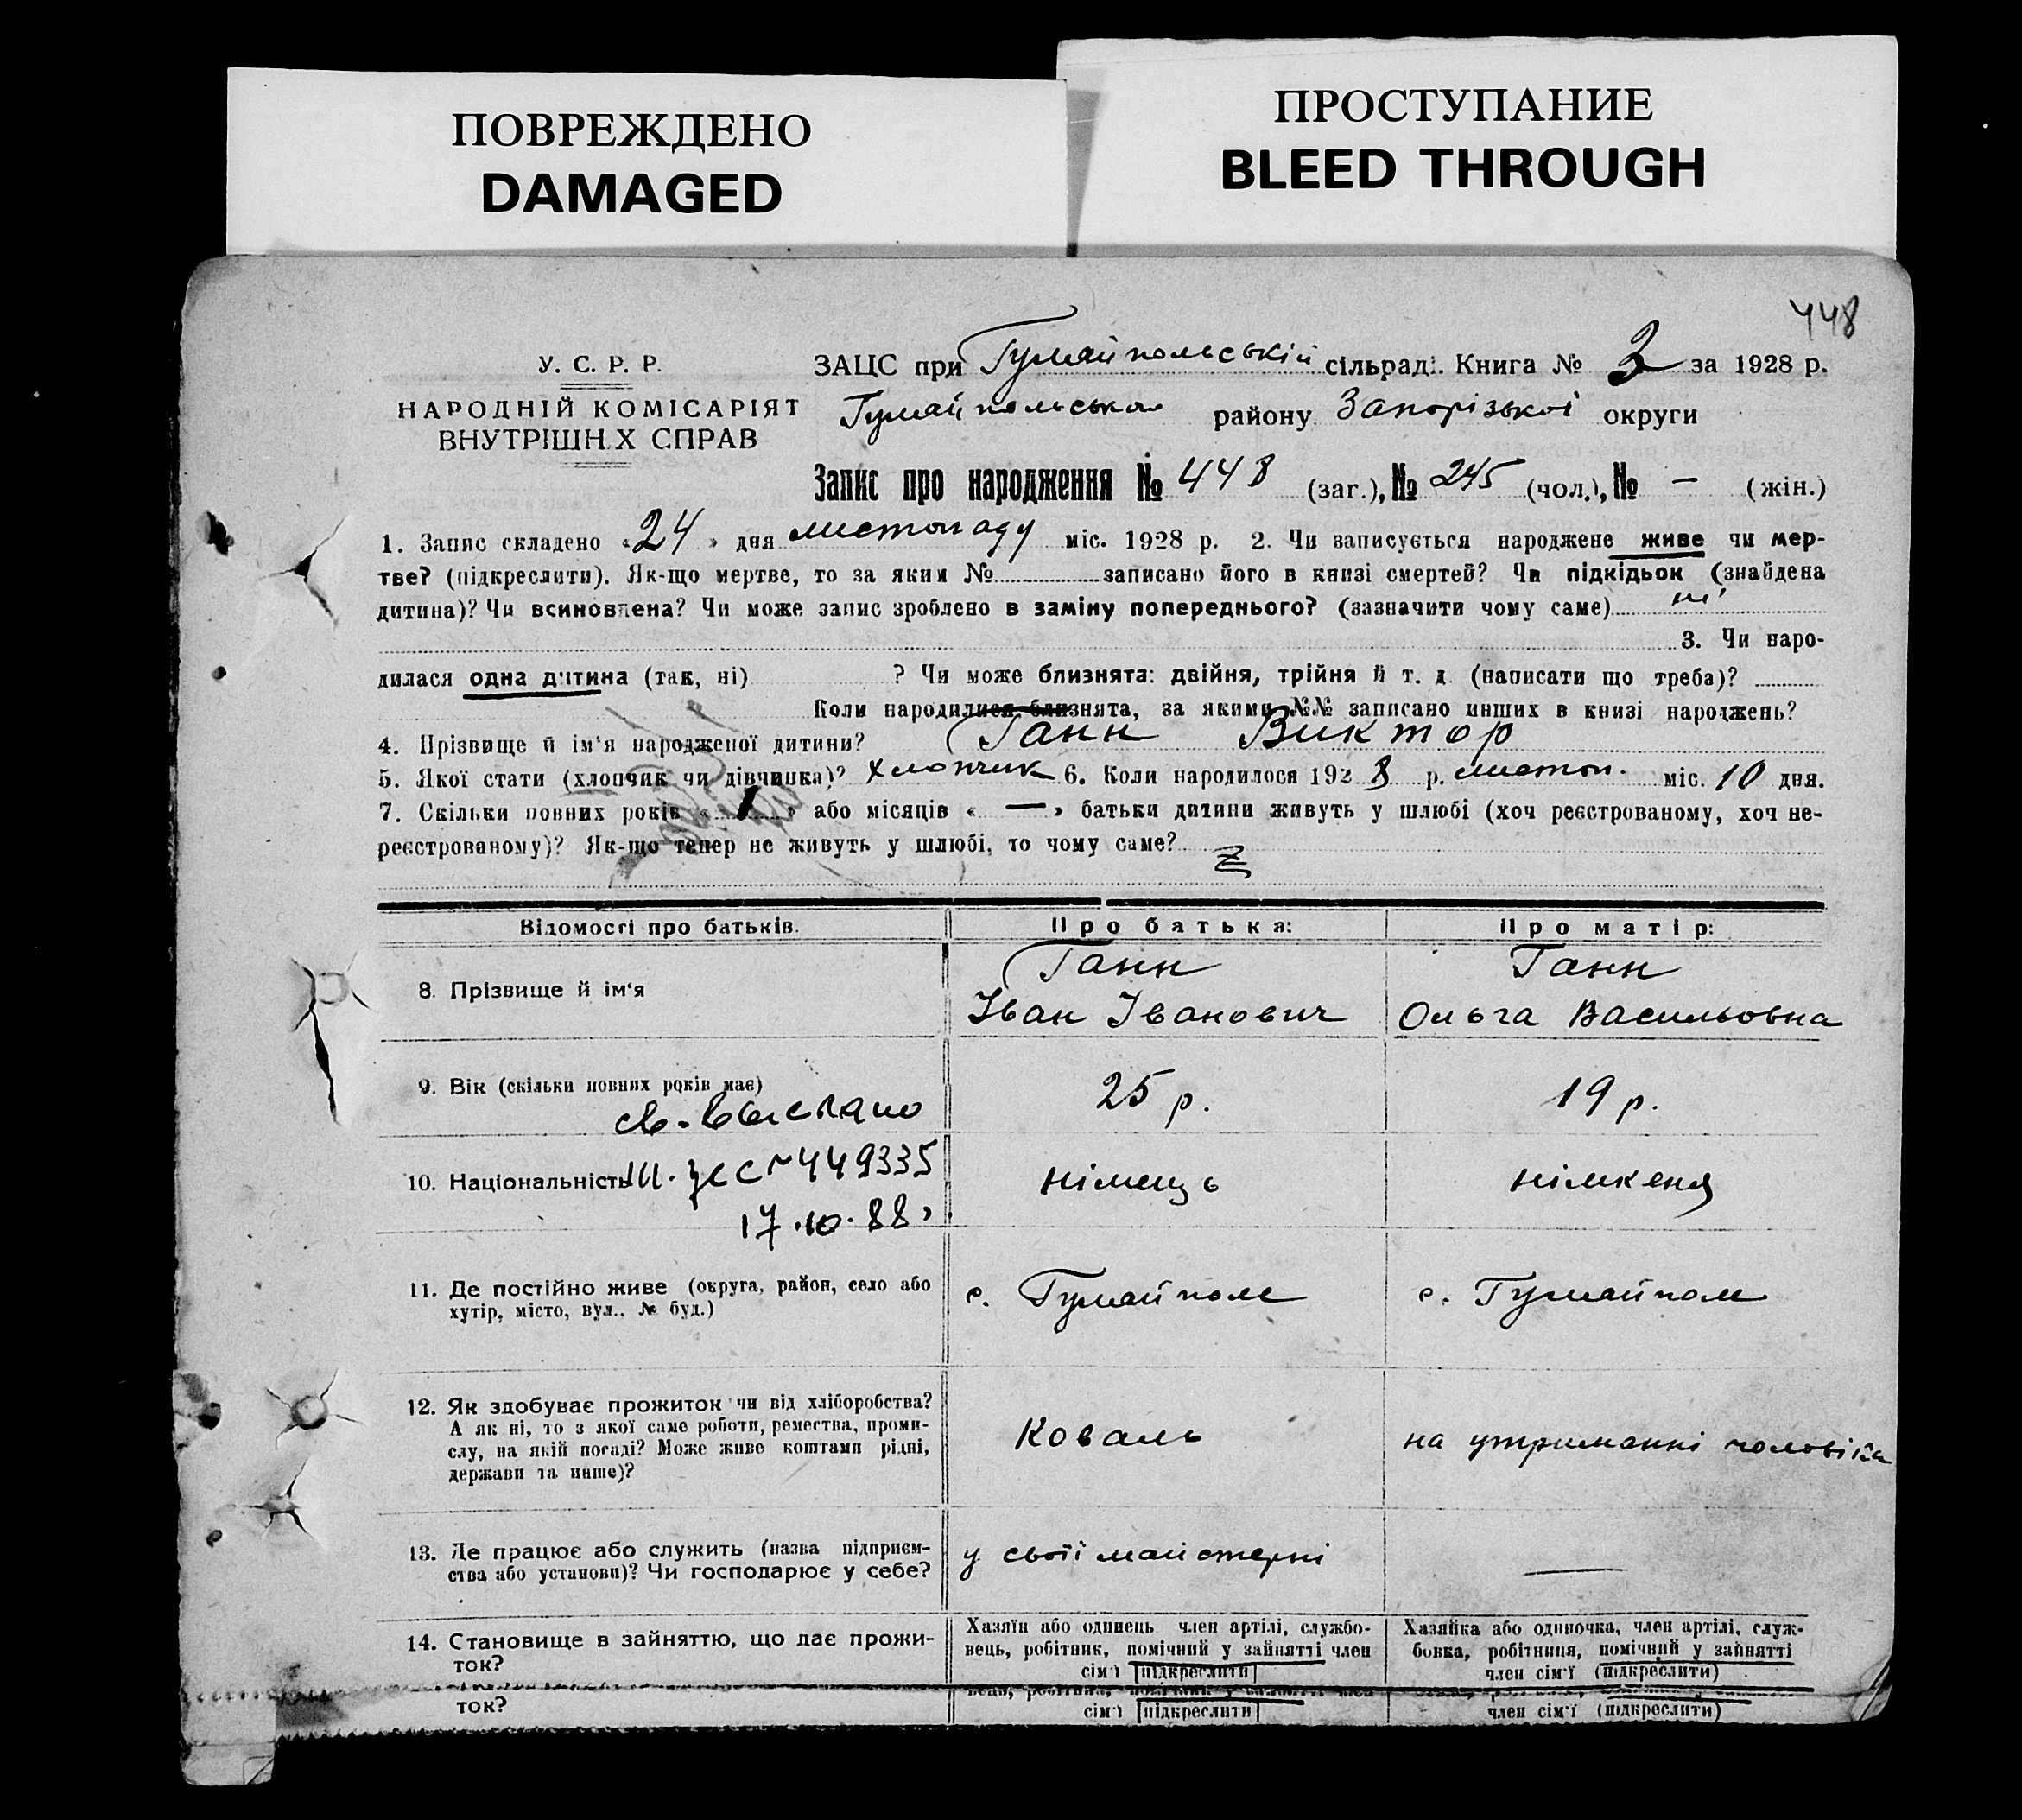 ПОВРЕЖДЕНО
DAMAGED
ПРОСТУПАНИЕ
BLEED THROUGH
448
У. С. Р. Р.
НАРОДНІЙ КОМІСАРІЯТ
ВНУТРІШН.Х СПРАВ
ЗАЦС при Гуляйпольській сільраді. Книга № 3 за 1928 р.
Гуляйпольсько району Запорізької округи
Запис про народження № 448 (заг.), № 245 (чол.), № — (жін.)
1. Запис складено «24» дня листопаду міс. 1928 р. 2. Чи записується народжене живе чи мер-
тве? (підкреслити). Як-що мертве, то за яким № записано його в книзі смертей? Чи підкідьок (знайдена
дитина)? Чи всиновлена? Чи може запис зроблено в заміну попереднього? (зазначити чому саме) ні
3. Чи наро-
дилася одна дитина (так, ні) ? Чи може близнята: двійня, трійня й т. д. (написати що треба)?
Коли народилися близнята, за якими №№ записано инших в книзі народжень?
4. Прізвище й ім'я народженої дитини? Ганн Виктор
5. Якої стати (хлопчик чи дівчинка)? хлопчик 6. Коли народилося 1928 р. листоп. міс. 10 дня.
7. Скільки повних років «1» або місяців «—» батьки дитини живуть у шлюбі (хоч реєстрованому, хоч не-
реєстрованому)? Як-що тепер не живуть у шлюбі, то чому саме?
Відомості про батьків. Про батька: Про матір:
8. Прізвище й ім'я
Ганн
Іван Іванович
Ганн
Ольга Васильовна
9. Вік (скільки повних років має) 25 р. 19 р.
св. выслано
10. Національність німець німкеня
449335
17.10.88
11. Де постійно живе (округа, район, село або
хутір, місто, вул., № буд.)
с. Гуляйполе с. Гуляйполе
12. Як здобуває прожиток чи від хліборобства?
А як ні, то з якої саме роботи, ремества, проми-
слу, на якій посаді? Може живе коштами рідні,
держави та инше)?
Коваль на утриманні чоловіка
13. Де працює або служить (назва підприєм-
ства або установи)? Чи господарює у себе?
у своїі майстерні —
14. Становище в зайняттю, що дає прожи-
ток?
Хазяїн або одинець член артілі, службо-
вець, робітник, помічний у зайнятті член
сім'ї (підкреслити)
Хазяйка або одиночка, член артілі, служ-
бовка, робітниця, помічний у зайнятті
член сім'ї (підкреслити)
ток?
сім'ї (підкреслити) член сім'ї (підкреслити)